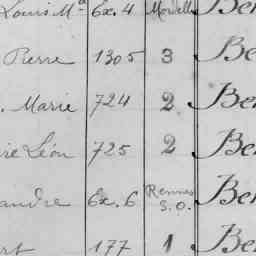 Louis Mª Ex. 4 Mordelle Be
Pierre 1305 3 Be
. Marie 724 2 Be
re Léon 725 2 Be
andre Ex. 6 Rennes S.O. Be
rt 177 1 Be